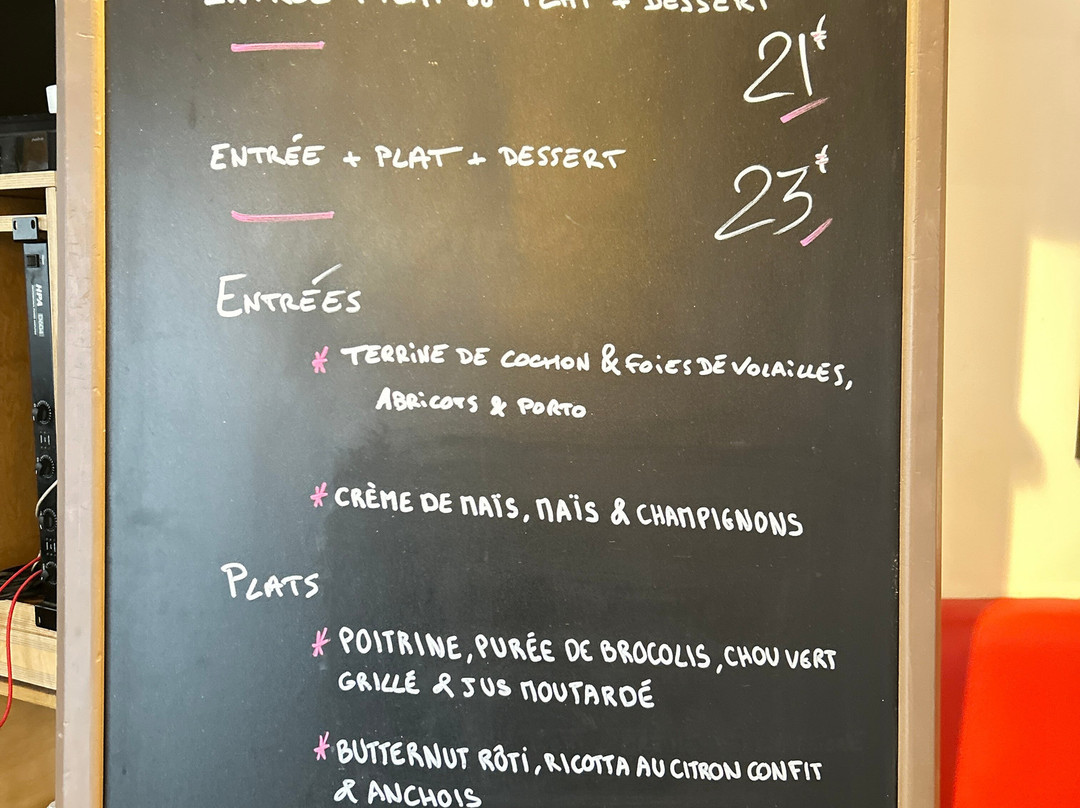 ENTRÉE + PLAT OU PLAT + DESSERT
21€
ENTRÉE + PLAT + DESSERT
23€
ENTRÉES
* TERRINE DE COCHON & FOIES DE VOLAILLES,
ABRICOTS & PORTO
* CRÈME DE MAÏS, MAÏS & CHAMPIGNONS
PLATS
* POITRINE, PURÉE DE BROCOLIS, CHOU VERT
GRILLÉ & JUS MOUTARDÉ
* BUTTERNUT RÔTI, RICOTTA AU CITRON CONFIT
& ANCHOIS